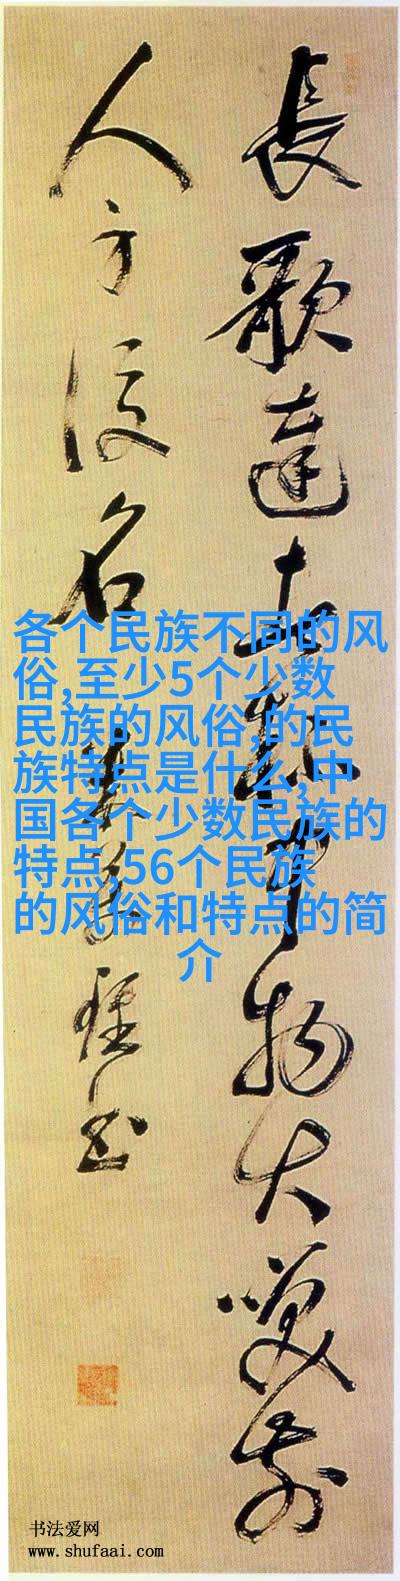 長歌達者杯中物大笑前
人身後名
米萬鍾書
各个民族不同的风
俗,至少5个少数
民族的风俗,的民
族特点是什么,中
国各个少数民族的
特点,56个民族
的风俗和特点的简
介
书法爱网
www.shufaai.com